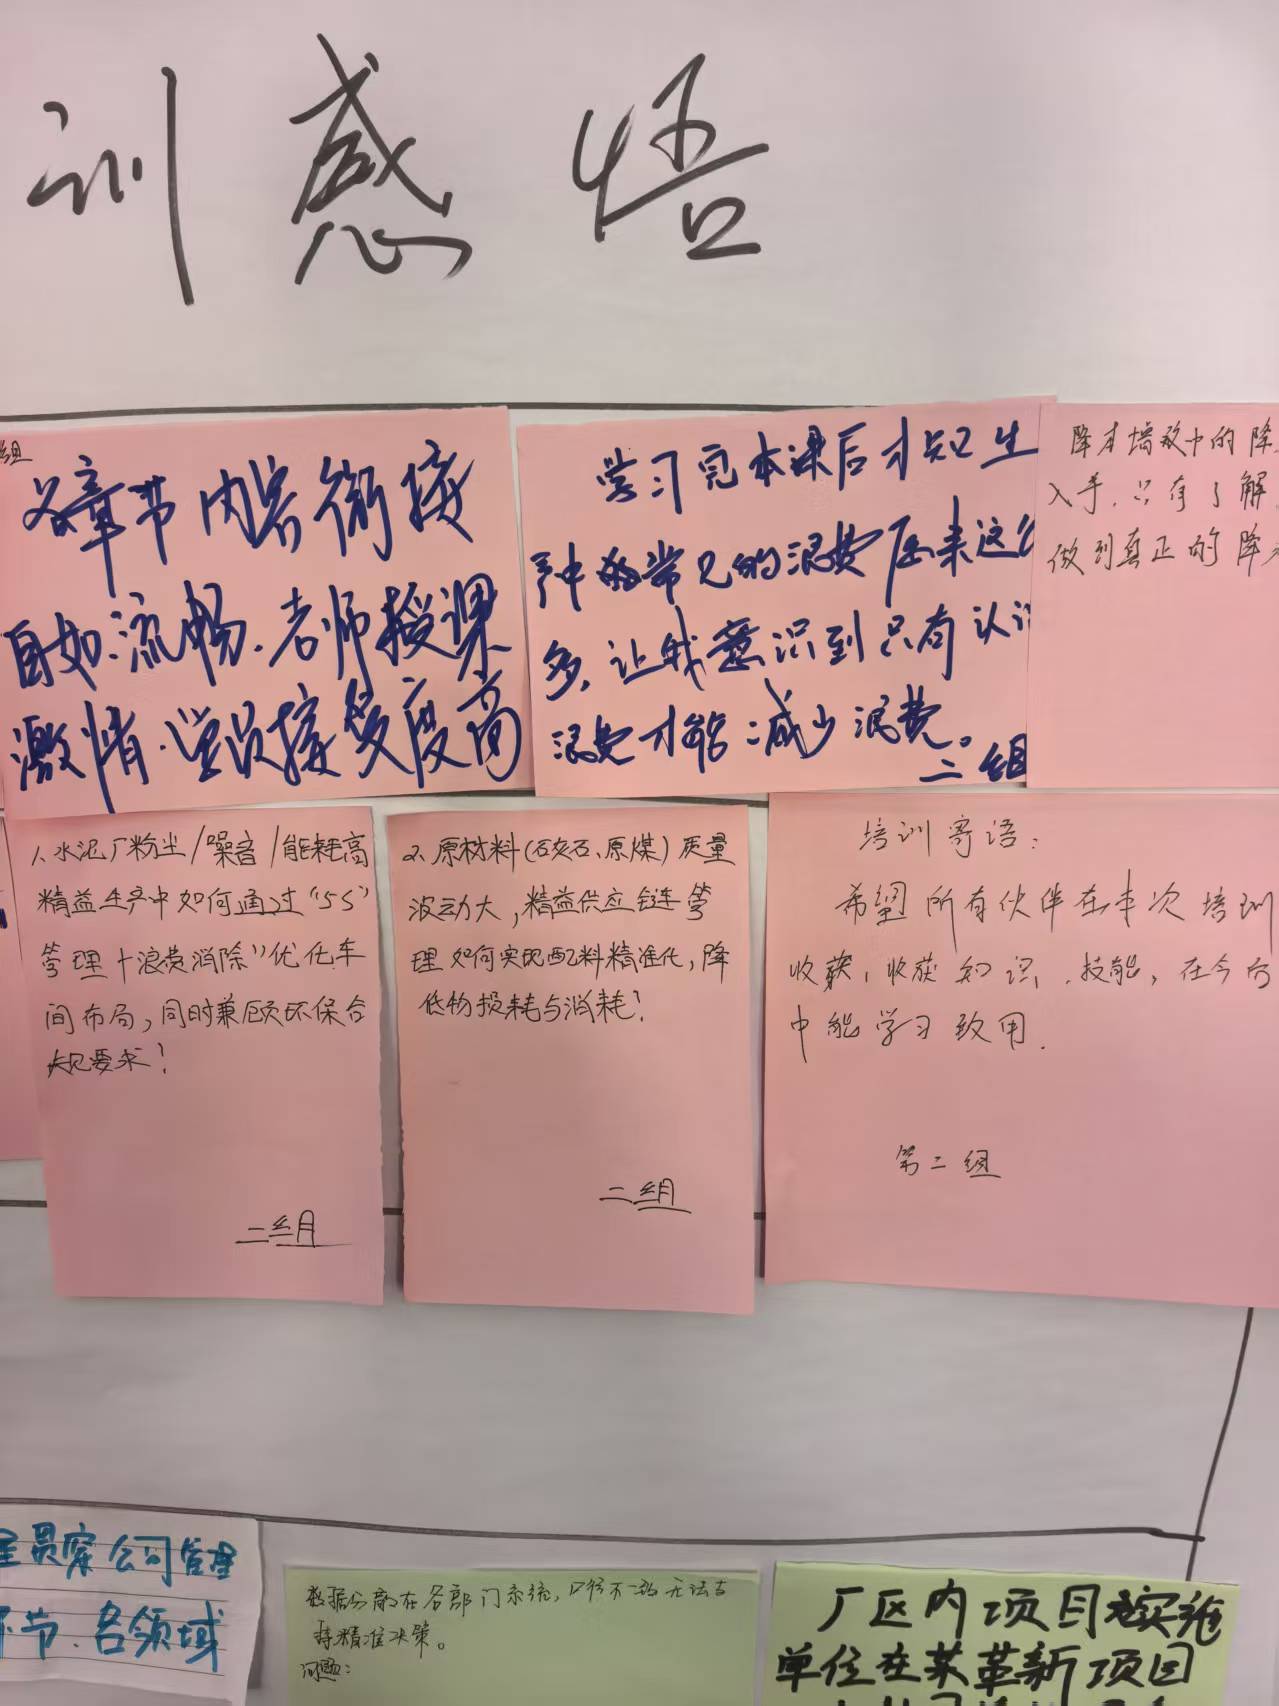 训感悟
组
各章节内容衔接
自如流畅.老师授课
激情.学员接受度高
学习完本课后才知生
产中的常见的浪费原来这么
多,让我意识到只有认识
浪费才能减少浪费。
二组
降本增效中的降
入手,只有了解
做到真正的降
1、水泥厂粉尘/噪音/能耗高
精益生产中如何通过“5S”
管理+浪费消除”优化车
间布局,同时兼顾环保合
规要求?
二组
2、原材料(石灰石、原煤)质量
波动大,精益供应链管
理如何实现配料精准化,降
低物损耗与消耗?
二组
培训寄语:
希望所有伙伴在本次培训
收获,收获知识、技能,在今后
中能学习致用.
第二组
公司管理
环节、各领域
数据分散在各部门系统,口径不一致无法支
持精准决策。
问题:
厂区内项目实施
单位在某革新项目